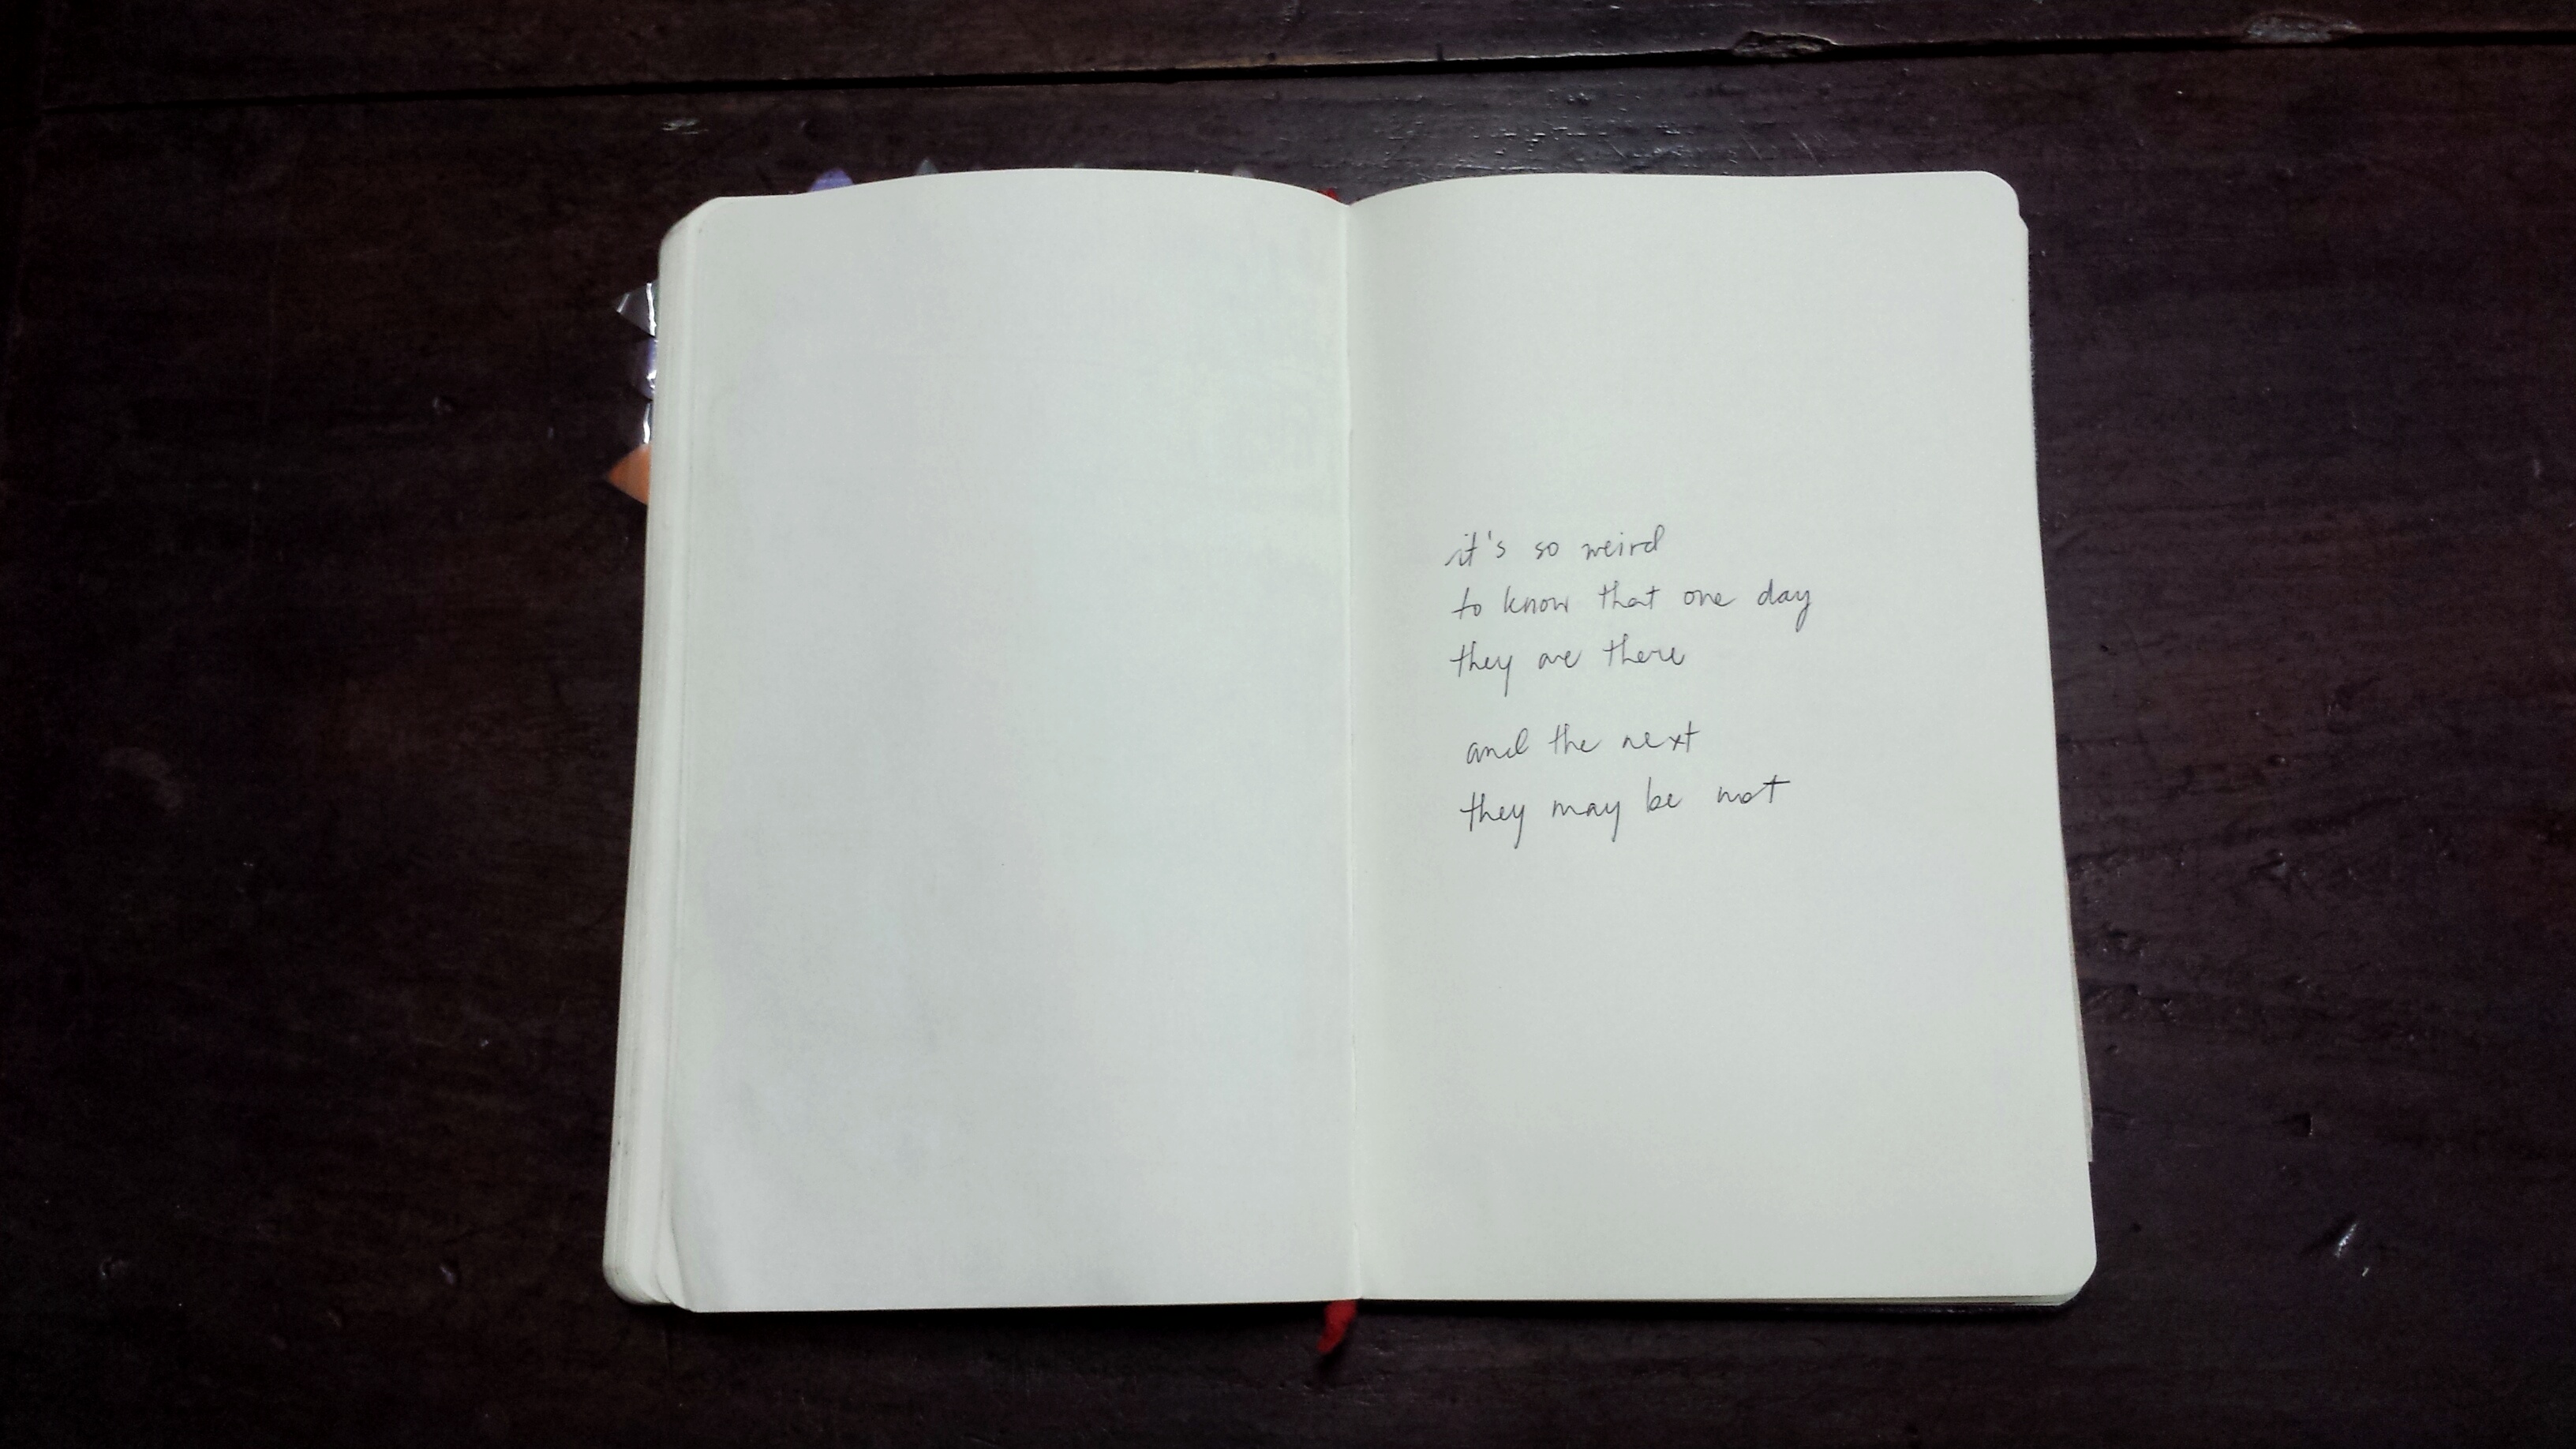 it's so weird
to know that one day
they are there
and the next
they may be not